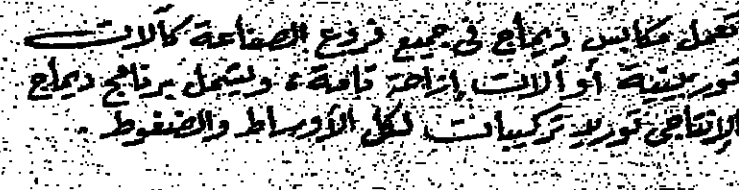 تعمل مكابس ديماج فى جميع فروع الصناعة كآلات
توربينية أو آلات إزاحة تامة، ويشمل برنامج ديماج
الإنتاجى توريد تركيبات لكل الأوساط والضغوط .